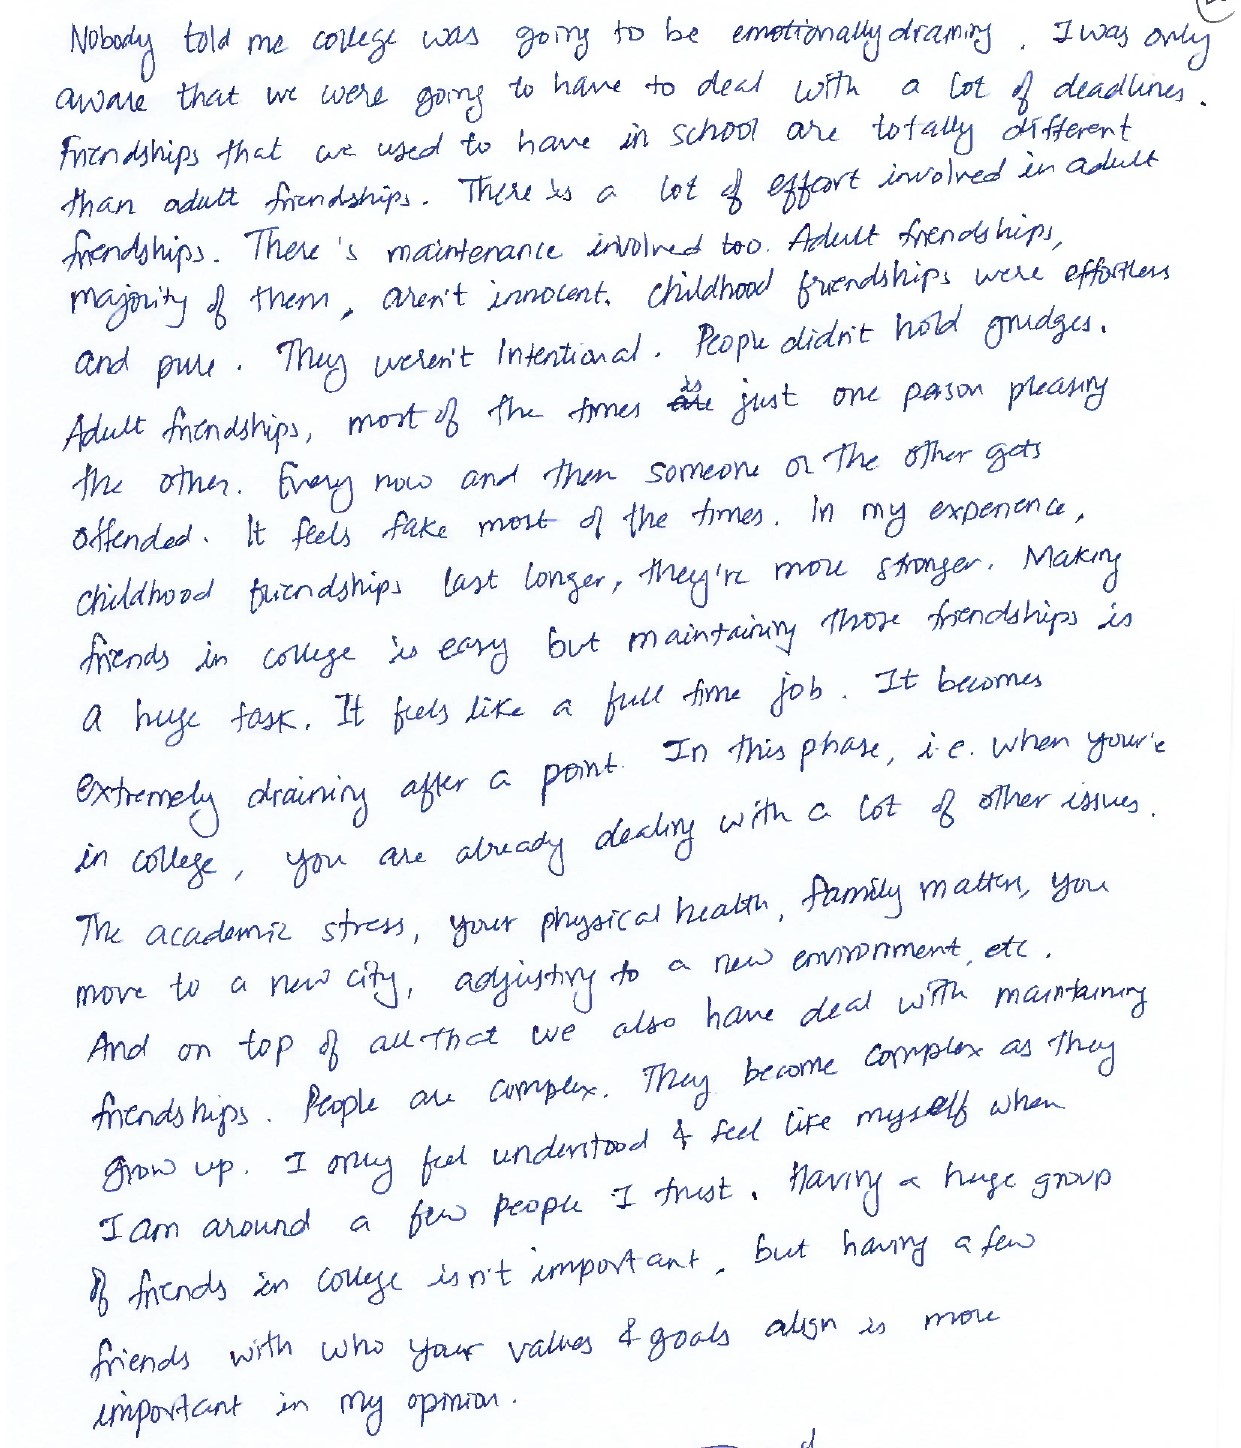 Nobody told me college was going to be emotionally draining. I was only
aware that we were going to have to deal with a lot of deadlines.
Friendships that we used to have in school are totally different
than adult friendships. There is a lot of effort involved in adult
friendships. There's maintenance involved too. Adult friendships,
majority of them, aren't innocent. Childhood friendships were effortless
and pure. They weren't Intentional. People didn't hold grudges.
Adult friendships, most of the times is just one person pleasing
the other. Every now and then someone or the other gets
offended. It feels fake most of the times. In my experience,
childhood friendships last longer, they're more stronger. Making
friends in college is easy but maintaining those friendships is
a huge task. It feels like a full time job. It becomes
extremely draining after a point. In this phase, i.e. when your'e
in college, you are already dealing with a lot of other issues.
The academic stress, your physical health, family matters, you
move to a new city, adjusting to a new environment, etc.
And on top of all that we also have deal with maintaining
friendships. People are complex. They become complex as they
grow up. I only feel understood & feel like myself when
I am around a few people I trust. Having a huge group
of friends in college isn't important, but having a few
friends with who your values & goals align is more
important in my opinion.